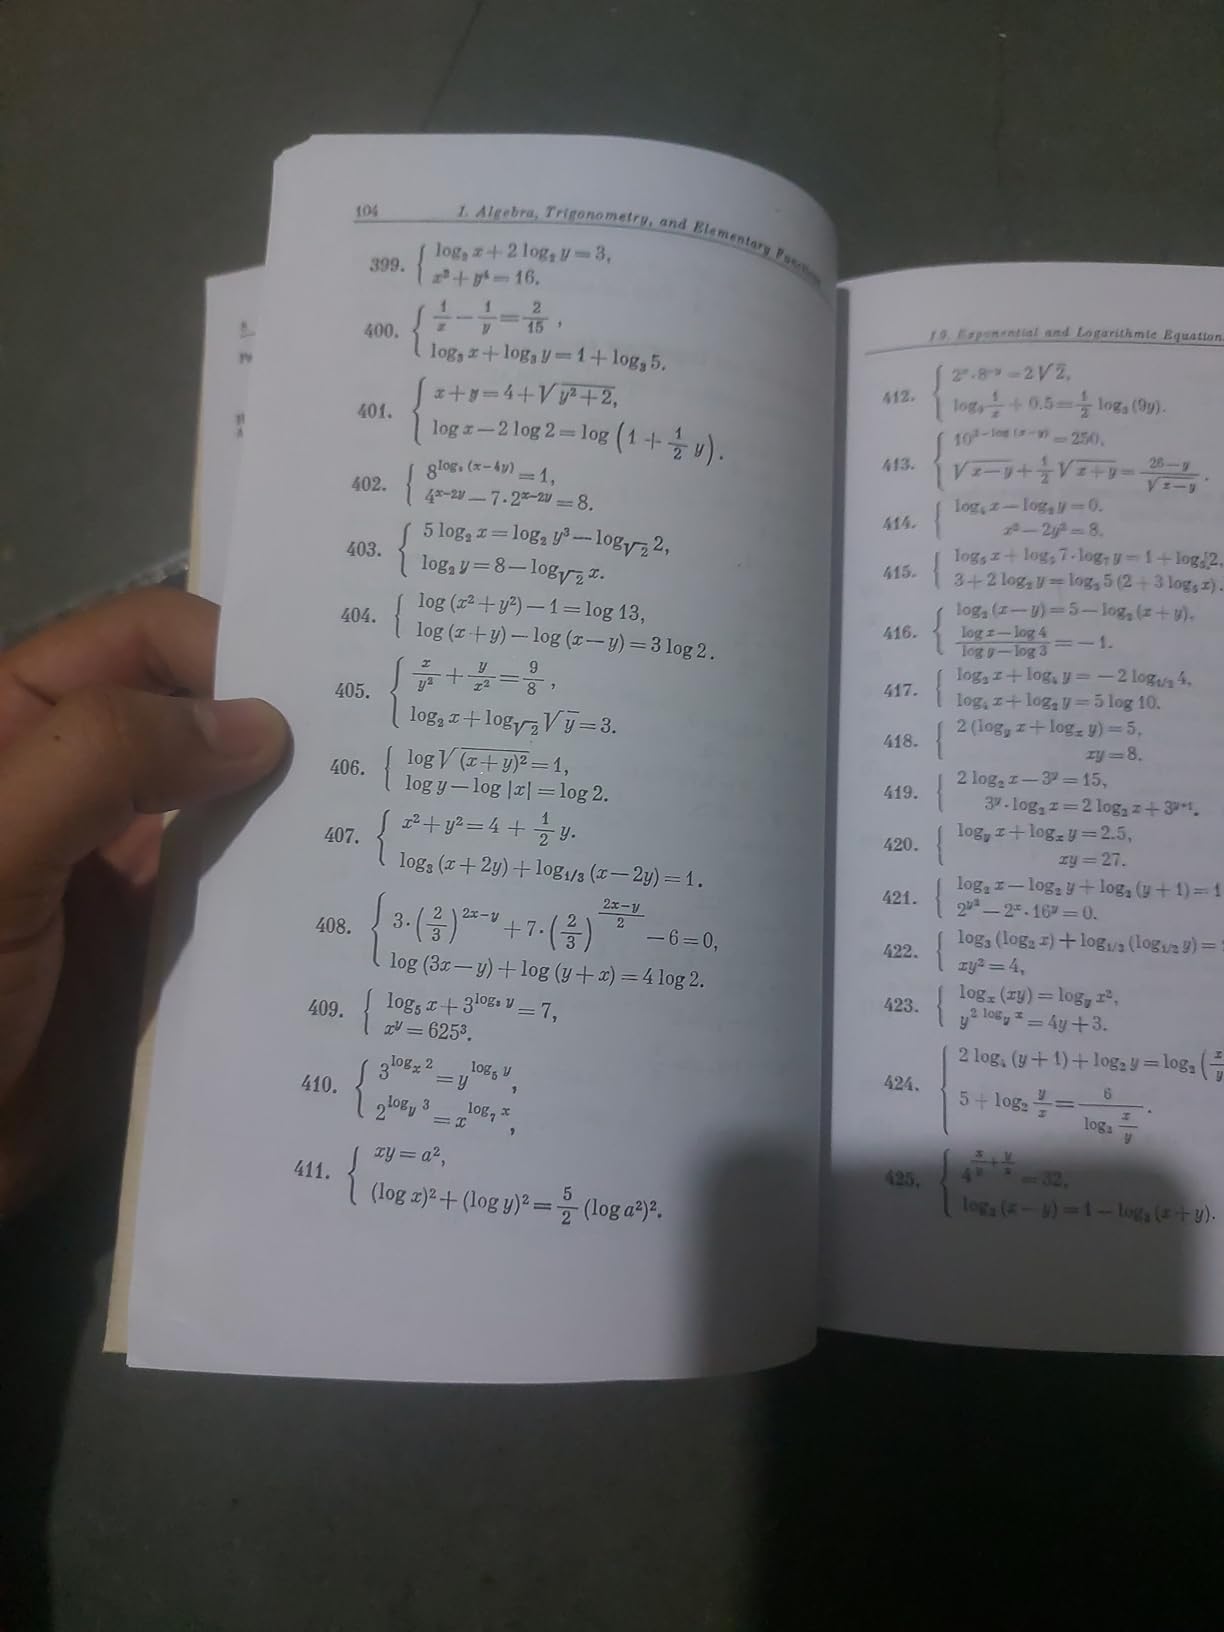 104 I. Algebra, Trigonometry, and Elementary Functions
399. { log₂ x + 2 log₂ y = 3,
x² + y⁴ = 16.
400. { 1/x − 1/y = 2/15 ,
log₃ x + log₃ y = 1 + log₃ 5.
401. { x + y = 4 + √(y² + 2),
log x − 2 log 2 = log (1 + 1/2 y).
402. { 8^(log₉ (x−4y)) = 1,
4^(x−2y) − 7·2^(x−2y) = 8.
403. { 5 log₂ x = log₂ y³ − log_√2 2,
log₂ y = 8 − log_√2 x.
404. { log (x² + y²) − 1 = log 13,
log (x + y) − log (x − y) = 3 log 2.
405. { x/y² + y/x² = 9/8 ,
log₂ x + log_√2 √y = 3.
406. { log √((x + y)²) = 1,
log y − log |x| = log 2.
407. { x² + y² = 4 + 1/2 y.
log₃ (x + 2y) + log₁/₃ (x − 2y) = 1.
408. { 3·(2/3)^(2x−y) + 7·(2/3)^((2x−y)/2) − 6 = 0,
log (3x − y) + log (y + x) = 4 log 2.
409. { log₅ x + 3^(log₃ y) = 7,
x^y = 625³.
410. { 3^(log_x 2) = y^(log₅ y),
2^(log_y 3) = x^(log₇ x),
411. { xy = a²,
(log x)² + (log y)² = 5/2 (log a²)².
Exponential and Logarithmic Equation
412. { 2^x·8^(−y) = 2√2,
log₉ 1/x + 0.5 = 1/2 log₃ (9y).
413. { 10^(3−log (x−y)) = 250,
√(x − y) + 1/2 √(x + y) = (26 − y)/√(x − y).
414. { log₄ x − log₂ y = 0,
x² − 2y² = 8.
415. { log₅ x + log₅ 7·log₇ y = 1 + log₅ 2,
3 + 2 log₂ y = log₂ 5 (2 + 3 log₅ x).
416. { log₂ (x − y) = 5 − log₂ (x + y),
(log x − log 4)/(log y − log 3) = −1.
417. { log₂ x + log₄ y = −2 log₁/₂ 4,
log₄ x + log₂ y = 5 log 10.
418. { 2 (log_y x + log_x y) = 5,
xy = 8.
419. { 2 log₂ x − 3^y = 15,
3^y·log₂ x = 2 log₂ x + 3^(y+1).
420. { log_y x + log_x y = 2.5,
xy = 27.
421. { log₂ x − log₂ y + log₂ (y + 1) = 1
2^(y²) − 2^x·16^y = 0.
422. { log₃ (log₂ x) + log₁/₃ (log₁/₂ y) =
xy² = 4,
423. { log_x (xy) = log_y x²,
y^(2 log_y x) = 4y + 3.
424. { 2 log₄ (y + 1) + log₂ y = log₂ (x/y
5 + log₂ y/x = 6/(log₂ x/y).
425. { 4^(x/y + y/x) = 32,
log₃ (x − y) = 1 − log₃ (x + y).